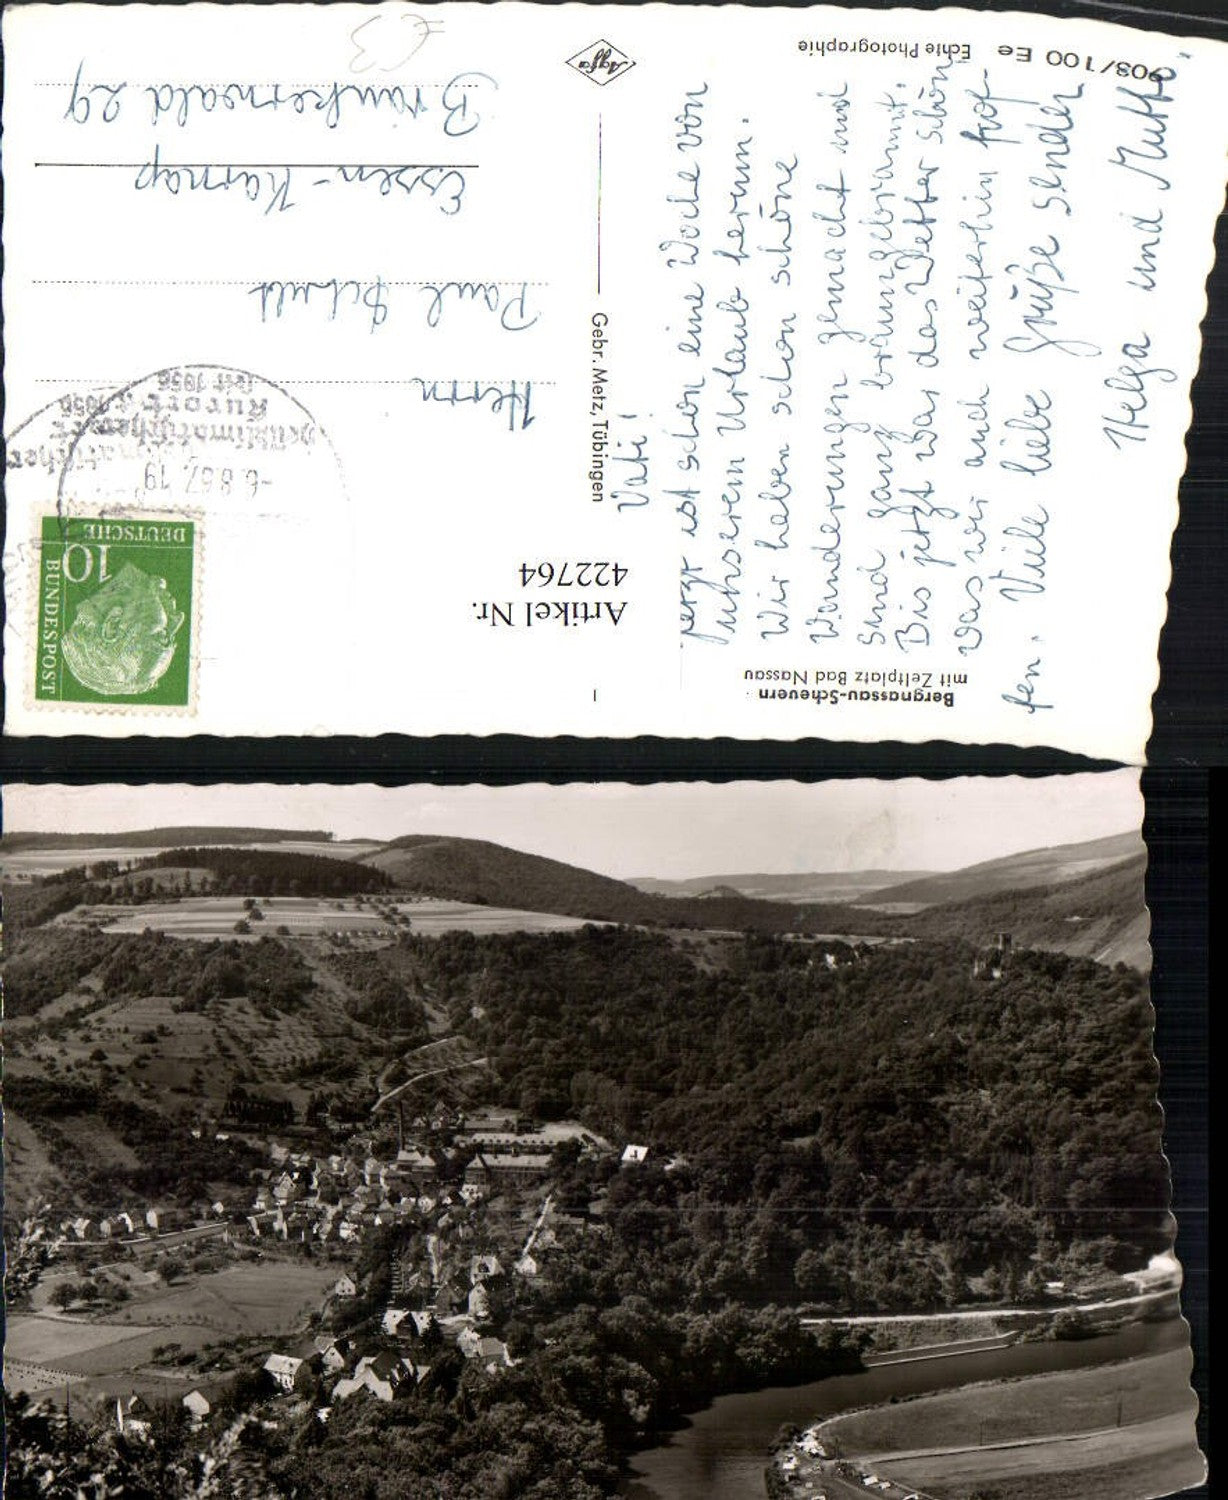 Bergnassau-Scheuern
mit Zeltplatz Bad Nassau
Vati!
Jetzt ist schon eine Woche von
unserem Urlaub herum.
Wir haben schon schöne
Wanderungen gemacht und
sind ganz braungebrannt.
Bis jetzt was das Wetter schön
was wir auch weiterhin hof-
fen. Viele liebe Grüße senden
Helga und Mutti
Artikel Nr.
422764
Gebr. Metz, Tübingen
Agfa
908/100 Ee Echte Photographie
DEUTSCHE
BUNDESPOST
10
-6.8.57.19
heilklimatischer
Kurort
seit 1856
Herrn
Paul Schult
Essen-Karnap
Brinkerwald 29
€3